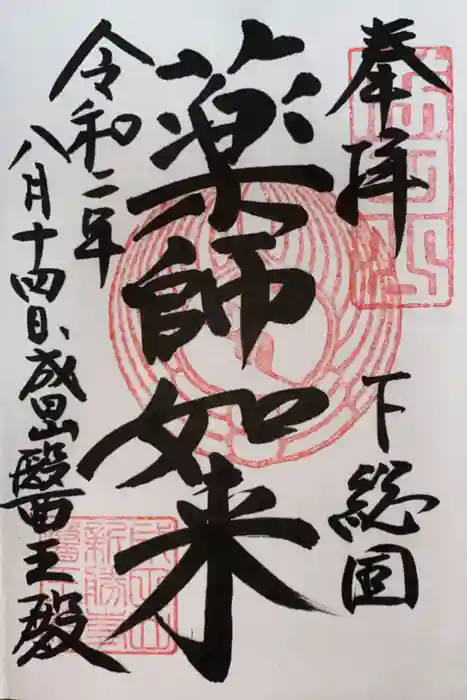 奉拝
下総国
薬師如来
令和二年
八月十四日、成田山醫王殿